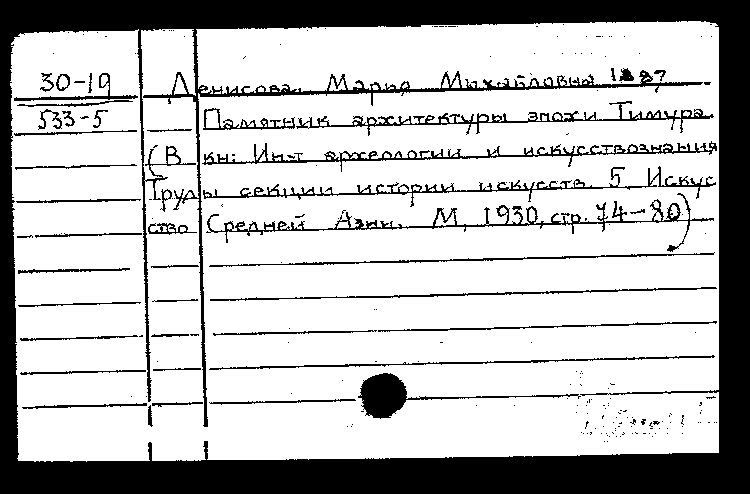 30-19 Денисова. Мария Михайловна 1887
533-5 Памятник архитектуры эпохи Тимура.
(В кн: Инт археологии и искусствознания
Труды секции истории искусств. 5. Искус
ство Средней Азии. М, 1930, стр. 74-80)